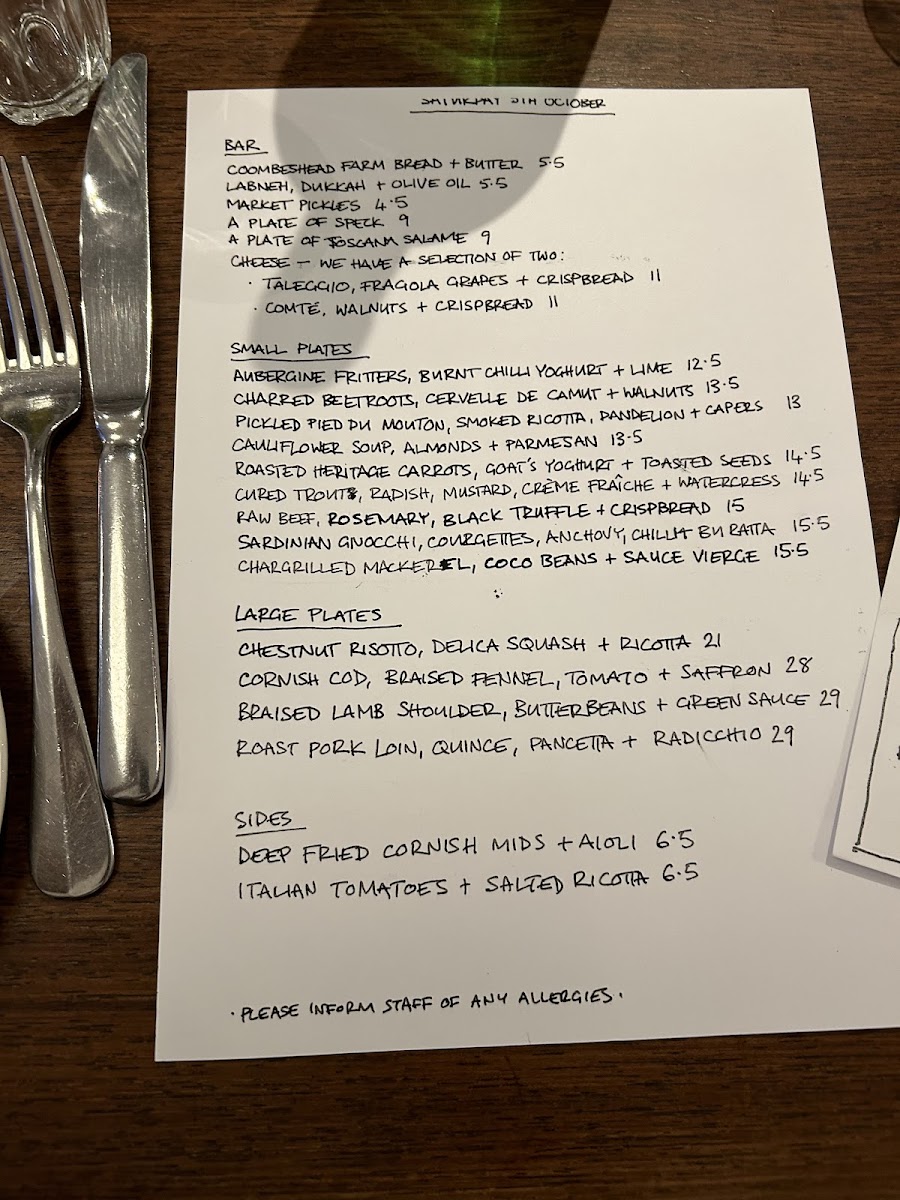 SATURDAY 5TH OCTOBER
BAR
COOMBESHEAD FARM BREAD + BUTTER 5.5
LABNEH, DUKKAH + OLIVE OIL 5.5
MARKET PICKLES 4.5
A PLATE OF SPECK 9
A PLATE OF TOSCANA SALAME 9
CHEESE – WE HAVE A SELECTION OF TWO:
· TALEGGIO, FRAGOLA GRAPES + CRISPBREAD 11
· COMTÉ, WALNUTS + CRISPBREAD 11
SMALL PLATES
AUBERGINE FRITTERS, BURNT CHILLI YOGHURT + LIME 12.5
CHARRED BEETROOTS, CERVELLE DE CANUT + WALNUTS 13.5
PICKLED PIED DU MOUTON, SMOKED RICOTTA, DANDELION + CAPERS 13
CAULIFLOWER SOUP, ALMONDS + PARMESAN 13.5
ROASTED HERITAGE CARROTS, GOAT'S YOGHURT + TOASTED SEEDS 14.5
CURED TROUT, RADISH, MUSTARD, CRÈME FRAÎCHE + WATERCRESS 14.5
RAW BEEF, ROSEMARY, BLACK TRUFFLE + CRISPBREAD 15
SARDINIAN GNOCCHI, COURGETTES, ANCHOVY, CHILLI + BURATTA 15.5
CHARGRILLED MACKEREL, COCO BEANS + SAUCE VIERGE 15.5
LARGE PLATES
CHESTNUT RISOTTO, DELICA SQUASH + RICOTTA 21
CORNISH COD, BRAISED FENNEL, TOMATO + SAFFRON 28
BRAISED LAMB SHOULDER, BUTTERBEANS + GREEN SAUCE 29
ROAST PORK LOIN, QUINCE, PANCETTA + RADICCHIO 29
SIDES
DEEP FRIED CORNISH MIDS + AIOLI 6.5
ITALIAN TOMATOES + SALTED RICOTTA 6.5
· PLEASE INFORM STAFF OF ANY ALLERGIES ·